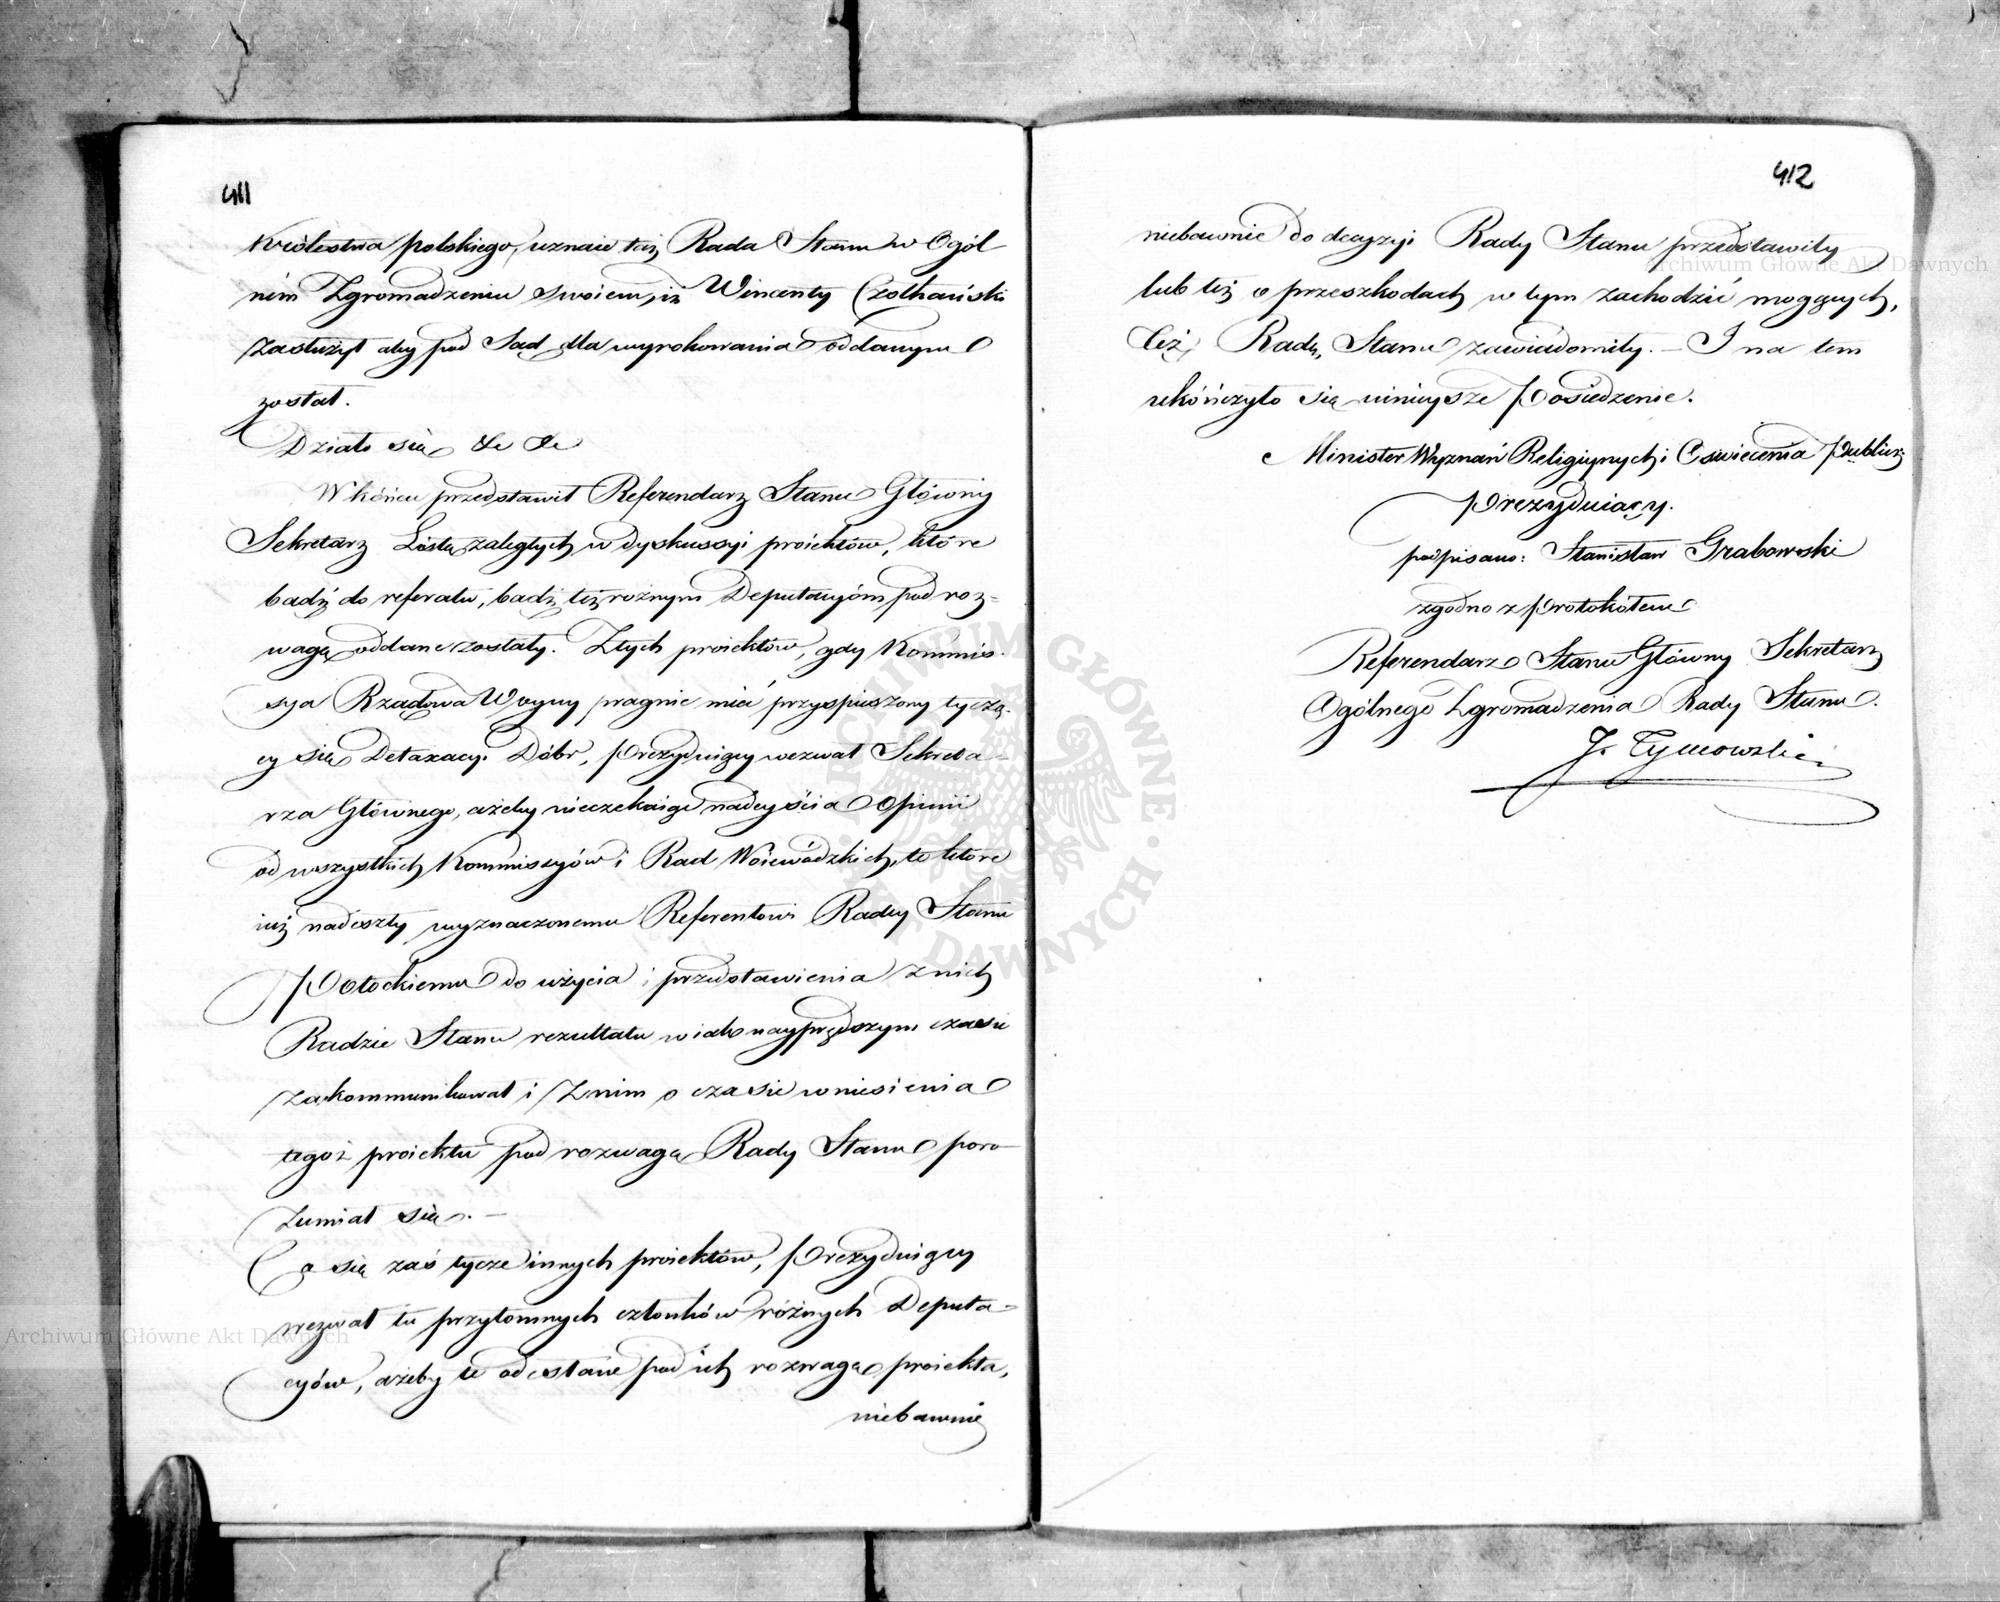 411
Królestwa polskiego, uznaie też Rada Stanu w Ogól
nem Zgromadzeniu swoiem, iż Wincenty Czołhański
zasłużył aby pod Sąd dla wyrokowania oddanym
został.
Działo się &c &c
W końcu przedstawił Referendarz Stanu Główny
Sekretarz Listę zaległych w dyskussyi proiektów, które
badź do referatu, badź też rożnym Deputacyóm pod roz=
wagę oddane zostały. Z tych proiektów, gdy Kommis=
sya Rządowa Woyny pragnie mieć przyspieszony tyczą=
cy się Detaxacyi Dóbr, Prezyduiący wezwał Sekreta=
rza Głównego, ażeby nieczekaiąc nadeyścia Opinii
od wszystkich Kommissyów i Rad Woiewódzkich, te które
iuż nadeszły wyznaczonemu Referentowi Radcy Stanu
Potockiemu do użycia i przedstawienia z nich
Radzie Stanu rezultatu w iak nayprędszym czasie
zakommunikował i z nim o czasie wniesienia
tegoż proiektu pod rozwagę Rady Stanu poro-
zumiał się. —
Co się zaś tycze innych proiektów, Prezyduiący
wezwał tu przytomnych członków różnych Deputa=
cyów, ażeby te odesłane pod ich rozwagę proiekta,
niebawnie
412
niebawnie do decyzyi Rady Stanu przedstawiły
lub też o przeszkodach w tym zachodzić mogących,
też Radę Stanu zawiadomiły. — I na tem
ukończyło się ninieysze Posiedzenie.
Minister Wyznań Religiynych i Oswiecenia Publicz
Prezyduiący.
podpisano: Stanisław Grabowski
zgodno z Protokółem
Referendarz Stanu Główny Sekretarz
Ogólnego Zgromadzenia Rady Stanu.
J. Tymowski
Archiwum Główne Akt Dawnych
Archiwum Główne Akt Dawnych
ARCHIWUM GŁÓWNE AKT DAWNYCH